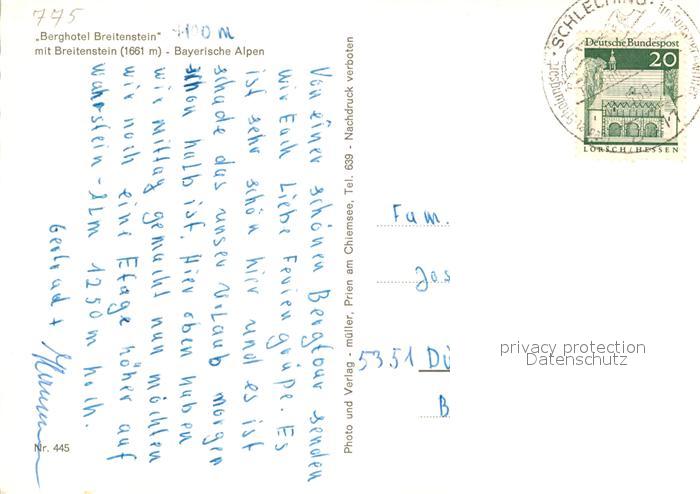 775
„Berghotel Breitenstein“ 1100 m
mit Breitenstein (1661 m) - Bayerische Alpen
Von einer schönen Bergtour senden
wir Euch Liebe Ferien grüße. Es
ist sehr schön hier und es ist
schade das unser Urlaub morgen
schon halb ist. Hier oben haben
wir mittag gemacht nun möchten
wir noch eine Etage höher auf
-Alm 1250 m hoch.
Gertrud +
Nr. 445
Photo und Verlag - müller, Prien am Chiemsee, Tel. 639 - Nachdruck verboten
SCHLECHING
Deutsche Bundespost
20
LORSCH/HESSEN
Fam.
Jos
5351 Dü
B
privacy protection
Datenschutz